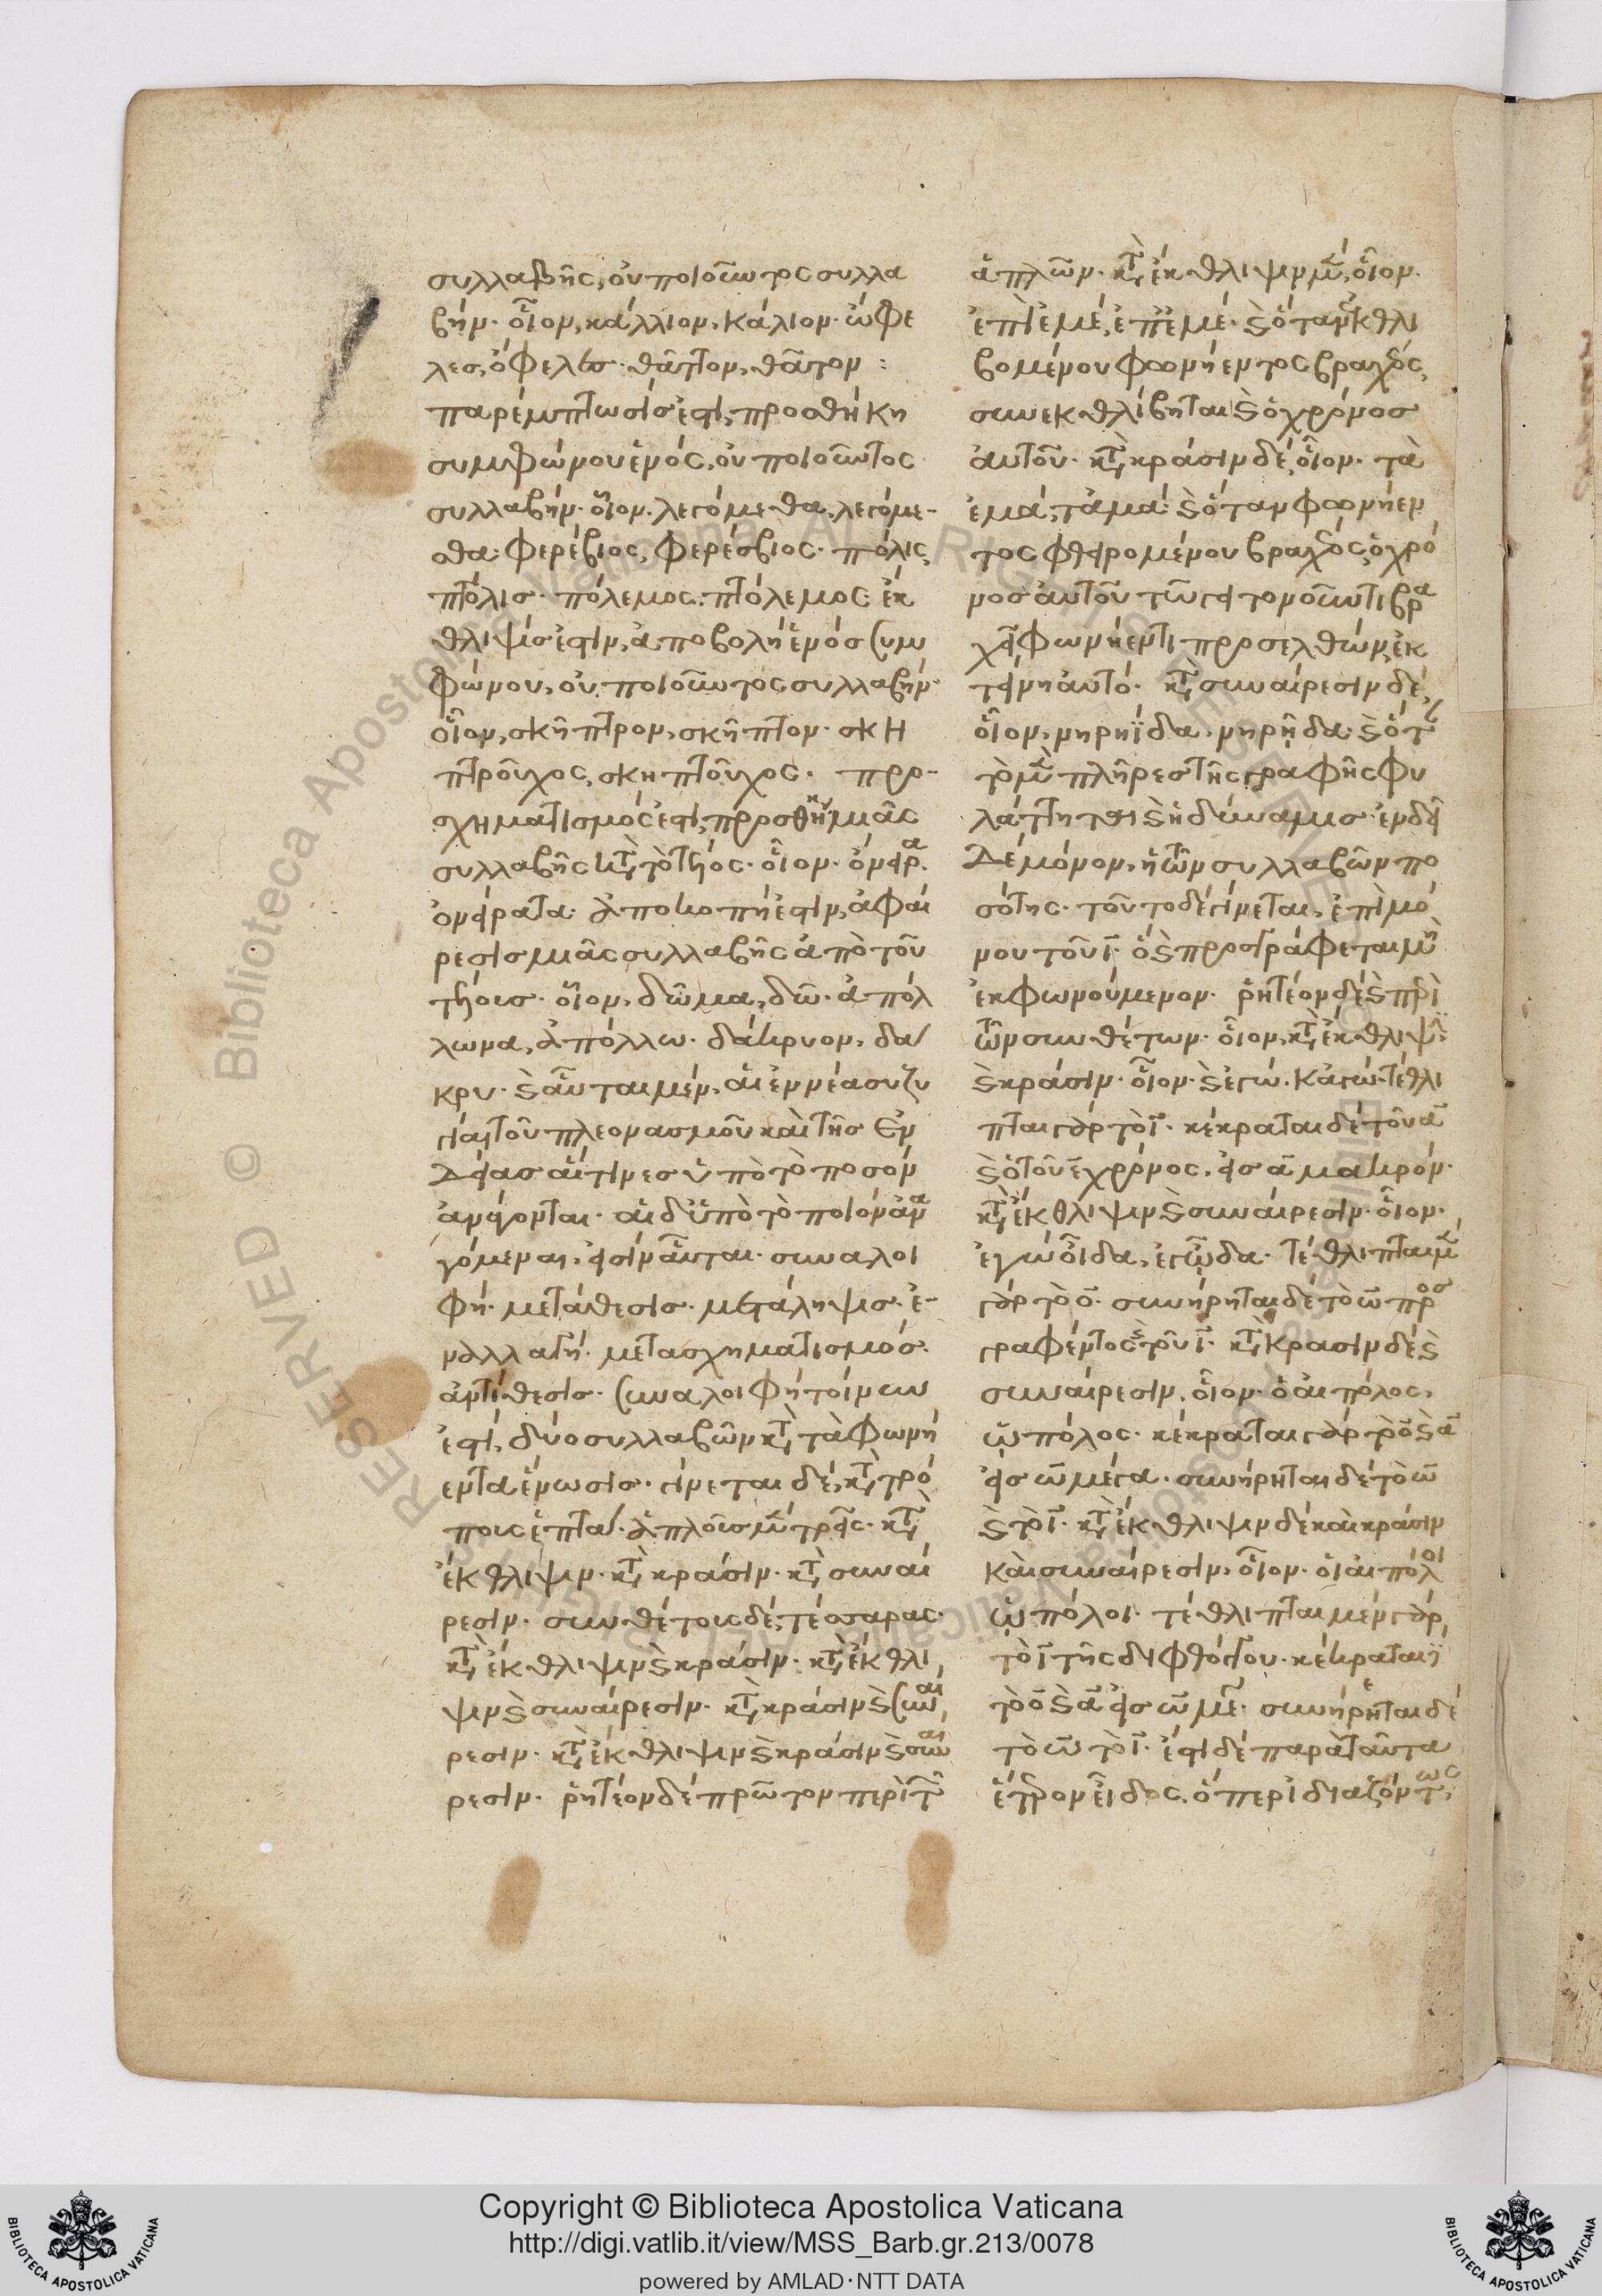 συλλαβῆς, οὐ ποιοῦντος συλλα
βήν· οἷον, κάλλιον, κάλιον· ὤφε
λες, ὄφελες· θᾶττον, θᾶτον:
παρέμπτωσίς ἐστι, προσθήκη
συμφώνου ἑνός, οὐ ποιοῦντος
συλλαβήν· οἷον· λεγόμεθα, λεγόμε-
σθα· φερέβιος, φερέσβιος· πόλις,
πτόλις· πόλεμος, πτόλεμος· ἔκ
θλιψίς ἐστιν, ἀποβολὴ ἑνὸς συμ
φώνου, οὐ ποιοῦντος συλλαβήν·
οἷον, σκῆπτρον, σκῆπτον· σκη
πτροῦχος, σκηπτοῦχος· προ-
σχηματισμός ἐστι, προσθήκη μιᾶς
συλλαβῆς κατὰ τὸ τέλος· οἷον· ὄνειρα
ὀνείρατα· ἀποκοπή ἐστιν, ἀφαί
ρεσις μιᾶς συλλαβῆς ἀπὸ τοῦ
τέλους· οἷον, δῶμα, δῶ· ἀπόλ
λωνα, ἀπόλλω· δάκρυον, δά
κρυ· καὶ αὗται μὲν, αἱ ἐννέα συζυ
γίαι τοῦ πλεονασμοῦ καὶ τῆς ἐν
δείας αἵτινες ὑπὸ τὸ ποσὸν
ἀνάγονται· αἱ δ' ὑπὸ τὸ ποιὸν ἀνα
γόμεναι, εἰσὶν αὗται· συναλοι
φή· μετάθεσις· μετάληψις· ἐ-
ναλλαγή· μετασχηματισμός·
ἀντίθεσις· συναλοιφὴ τοίνυν
ἐστί, δύο συλλαβῶν κατὰ τὰ φωνή
εντα ἕνωσις· γίνεται δὲ, κατὰ τρό
πους ἑπτά· ἁπλοῦς μὲν τρεῖς· κατὰ
ἔκθλιψιν· κατὰ κράσιν· κατὰ συναί
ρεσιν· συνθέτους δὲ, τέσσαρας·
κατὰ ἔκθλιψιν καὶ κράσιν· κατὰ ἔκθλι
ψιν καὶ συναίρεσιν· κατὰ κράσιν καὶ συναί
ρεσιν· κατὰ ἔκθλιψιν καὶ κράσιν καὶ συναί
ρεσιν· ῥητέον δὲ πρῶτον περὶ τῶν
ἁπλῶν· κατὰ ἔκθλιψιν μὲν, οἷον·
ἐπὶ ἐμέ, ἐπ' ἐμέ· καὶ ὅταν ἐκθλι
βομένου φωνήεντος βραχέος,
συνεκθλίβηται καὶ ὁ χρόνος
αὐτοῦ· κατὰ κράσιν δὲ, οἷον· τὰ
ἐμά, τἀμά· καὶ ὅταν φωνήεν
τος φθειρομένου βραχέος, ὁ χρό
νος αὐτοῦ τῷ γειτονοῦντι βρα
χεῖ φωνήεντι προσελθών, ἐκ
τείνη αὐτό· κατὰ συναίρεσιν δὲ,
οἷον, νηρηΐδα, νηρῇδα· καὶ ὅτε
τὸ μὲν πλῆρες τῆς γραφῆς φυ
λάττηται καὶ ἡ δύναμις· ἐνδεῖ
δὲ μόνον, ἡ τῶν συλλαβῶν πο
σότης· τοῦτο δὲ γίνεται, ἐπὶ μό
νου τοῦ ι· ὃ καὶ προσγράφεται μὴ
ἐκφωνούμενον· ῥητέον δὲ καὶ περὶ
τῶν συνθέτων· οἷον, κατὰ ἔκθλιψιν
καὶ κράσιν· οἷον· καὶ ἐγώ· κἀγώ· τέθλι
πται γὰρ τὸ ι· κέκραται δὲ τοῦ α
καὶ ὁ τοῦ ε χρόνος, εἰς α μακρόν·
κατὰ ἔκθλιψιν καὶ συναίρεσιν· οἷον·
ἐγὼ οἶδα, ἐγᾦδα· τέθλιπται μὲν
γὰρ τὸ ο· συνῄρηται δὲ τὸ ω προσ
γραφέντος καὶ τοῦ ι· κατὰ κράσιν δὲ καὶ
συναίρεσιν, οἷον· ὁ αἰπόλος,
ᾡπόλος· κέκραται γὰρ τὸ ο καὶ α
εἰς ω μέγα· συνῄρηται δὲ τὸ ω
καὶ τὸ ι· κατὰ ἔκθλιψιν δὲ καὶ κράσιν
καὶ συναίρεσιν, οἷον· οἱ αἰπόλοι
ᾡπόλοι· τέθλιπται μὲν γὰρ,
τὸ ι τῆς διφθόγγου· κέκραται
τὸ ο καὶ α εἰς ω μέγα· συνῄρηται δὲ
τὸ ω τὸ ι· ἔστι δὲ παρὰ ταῦτα
ἕτερον εἶδος, ὅπερ ἰδιαζόντως
Copyright © Biblioteca Apostolica Vaticana
http://digi.vatlib.it/view/MSS_Barb.gr.213/0078
powered by AMLAD·NTT DATA
BIBLIOTECA APOSTOLICA VATICANA
BIBLIOTECA APOSTOLICA VATICANA